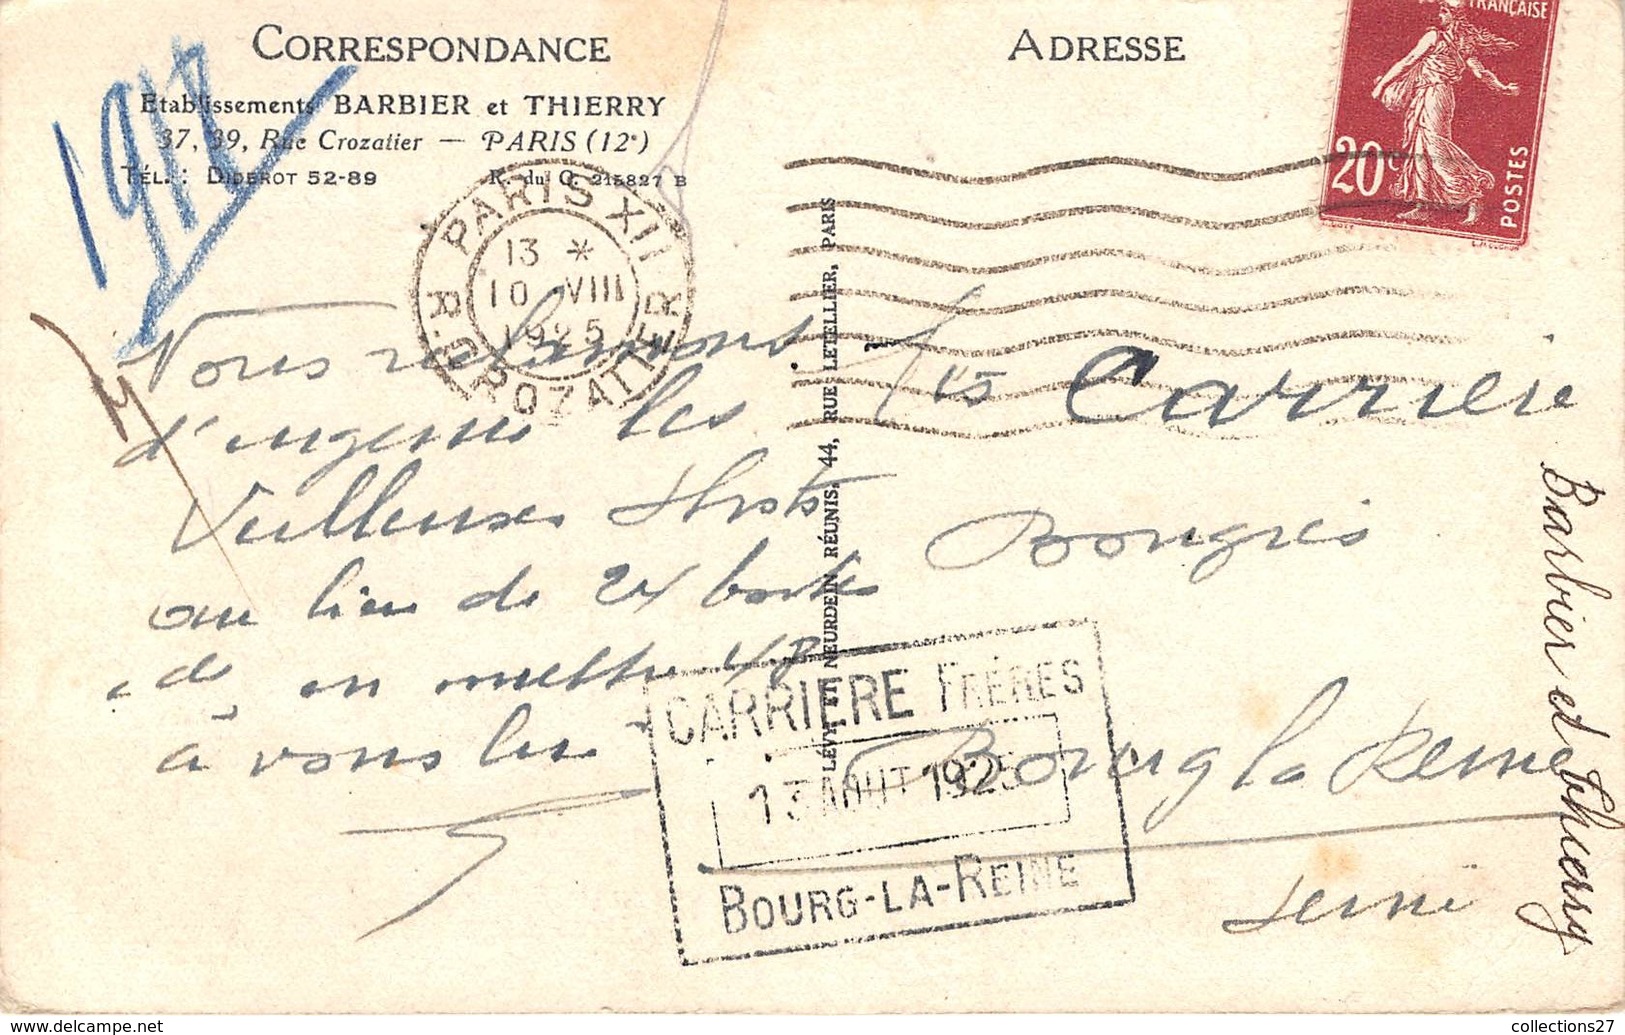 CORRESPONDANCE
Etablissements BARBIER et THIERRY
37, 39, Rue Crozatier — PARIS (12e)
TÉL. : DIDEROT 52-89
R. du C. 215827 B
1918
PARIS XII
13 *
10 VIII
1925
R. CROZATIER
Nous réclamons
d'urgence les
Veilleuses
au lieu de 24 boites
en mettre 48
à vous lire
LÉVY ET NEURDEIN RÉUNIS, 44, RUE LETELLIER, PARIS
ADRESSE
FRANÇAISE
20c
POSTES
Carriere
Bougies
Bourg la Reine
Seine
CARRIERE FRÉRES
13 AOUT 1925
BOURG-LA-REINE
Barbier et Thierry
https://www.delcampe.net
collections27